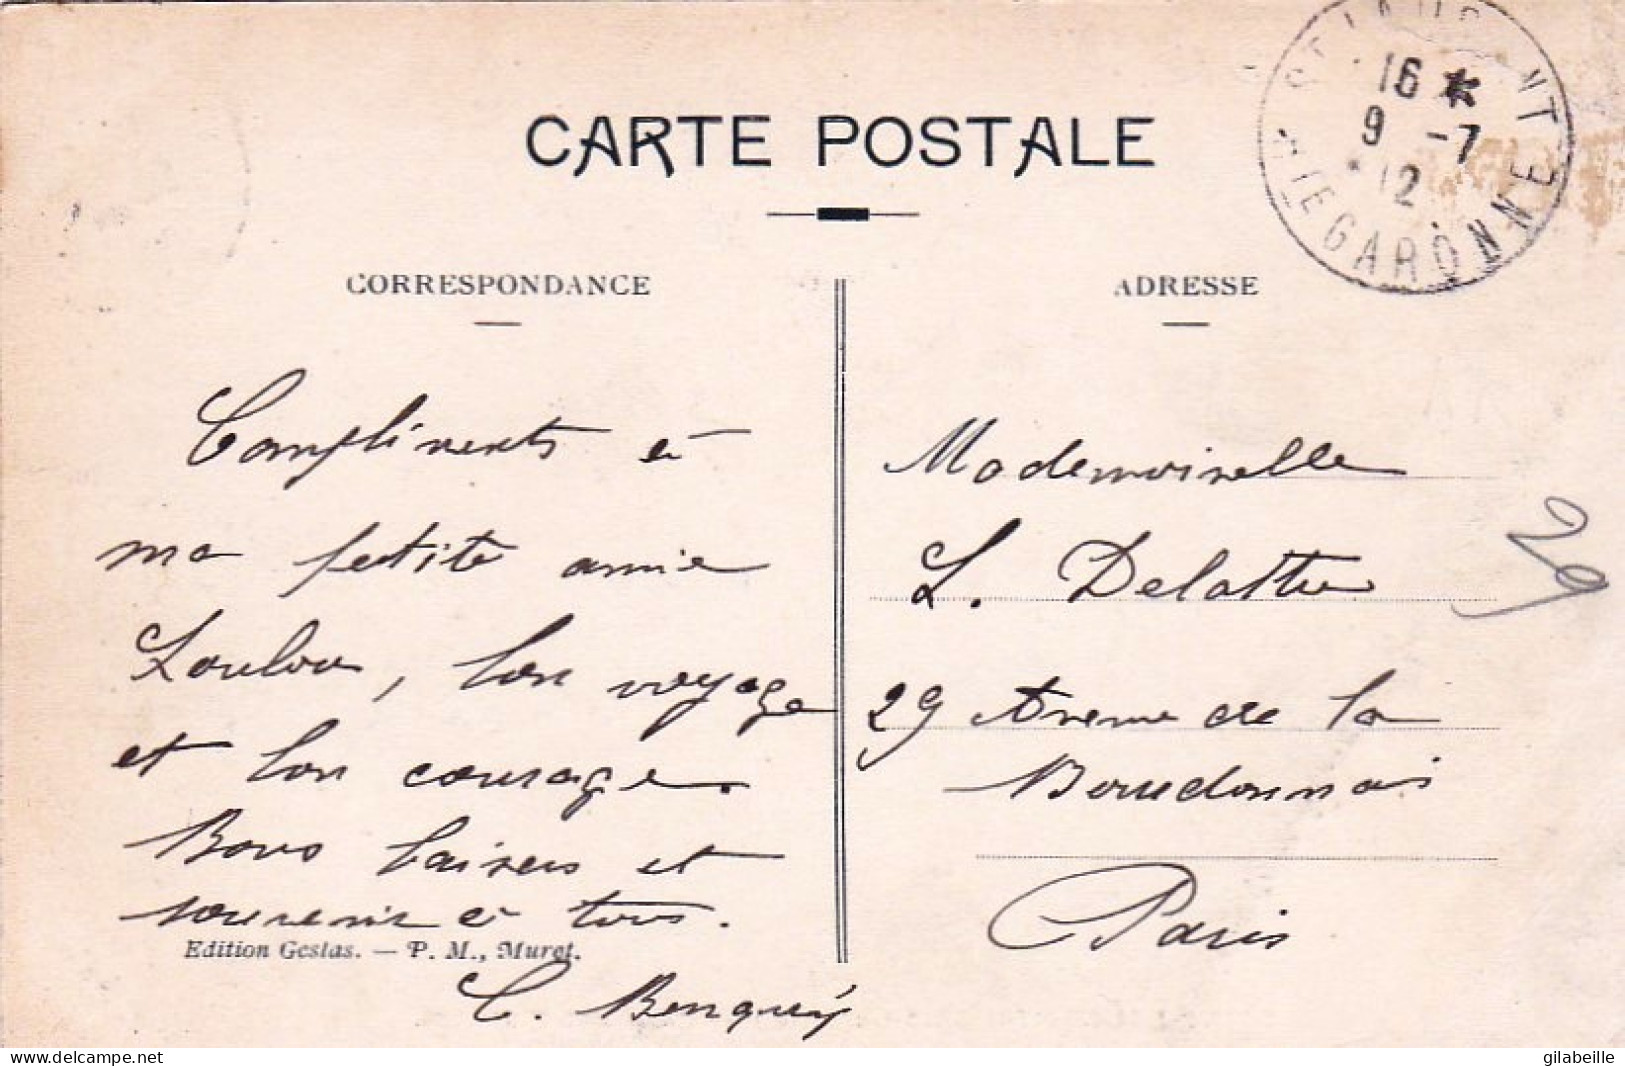 CARTE POSTALE
ST LAURENT
16 *
9 -7
12
HTE GARONNE
CORRESPONDANCE
Compliments à
ma petite amie
Loulou, bon voyage
et bon courage.
Bons baisers et
souvenir à tous.
Edition Gestas. — P. M., Muret.
C. Benquéy
ADRESSE
Mademoiselle
L. Delattre
29 Avenue de la
Bourdonnais
Paris
gilabeille